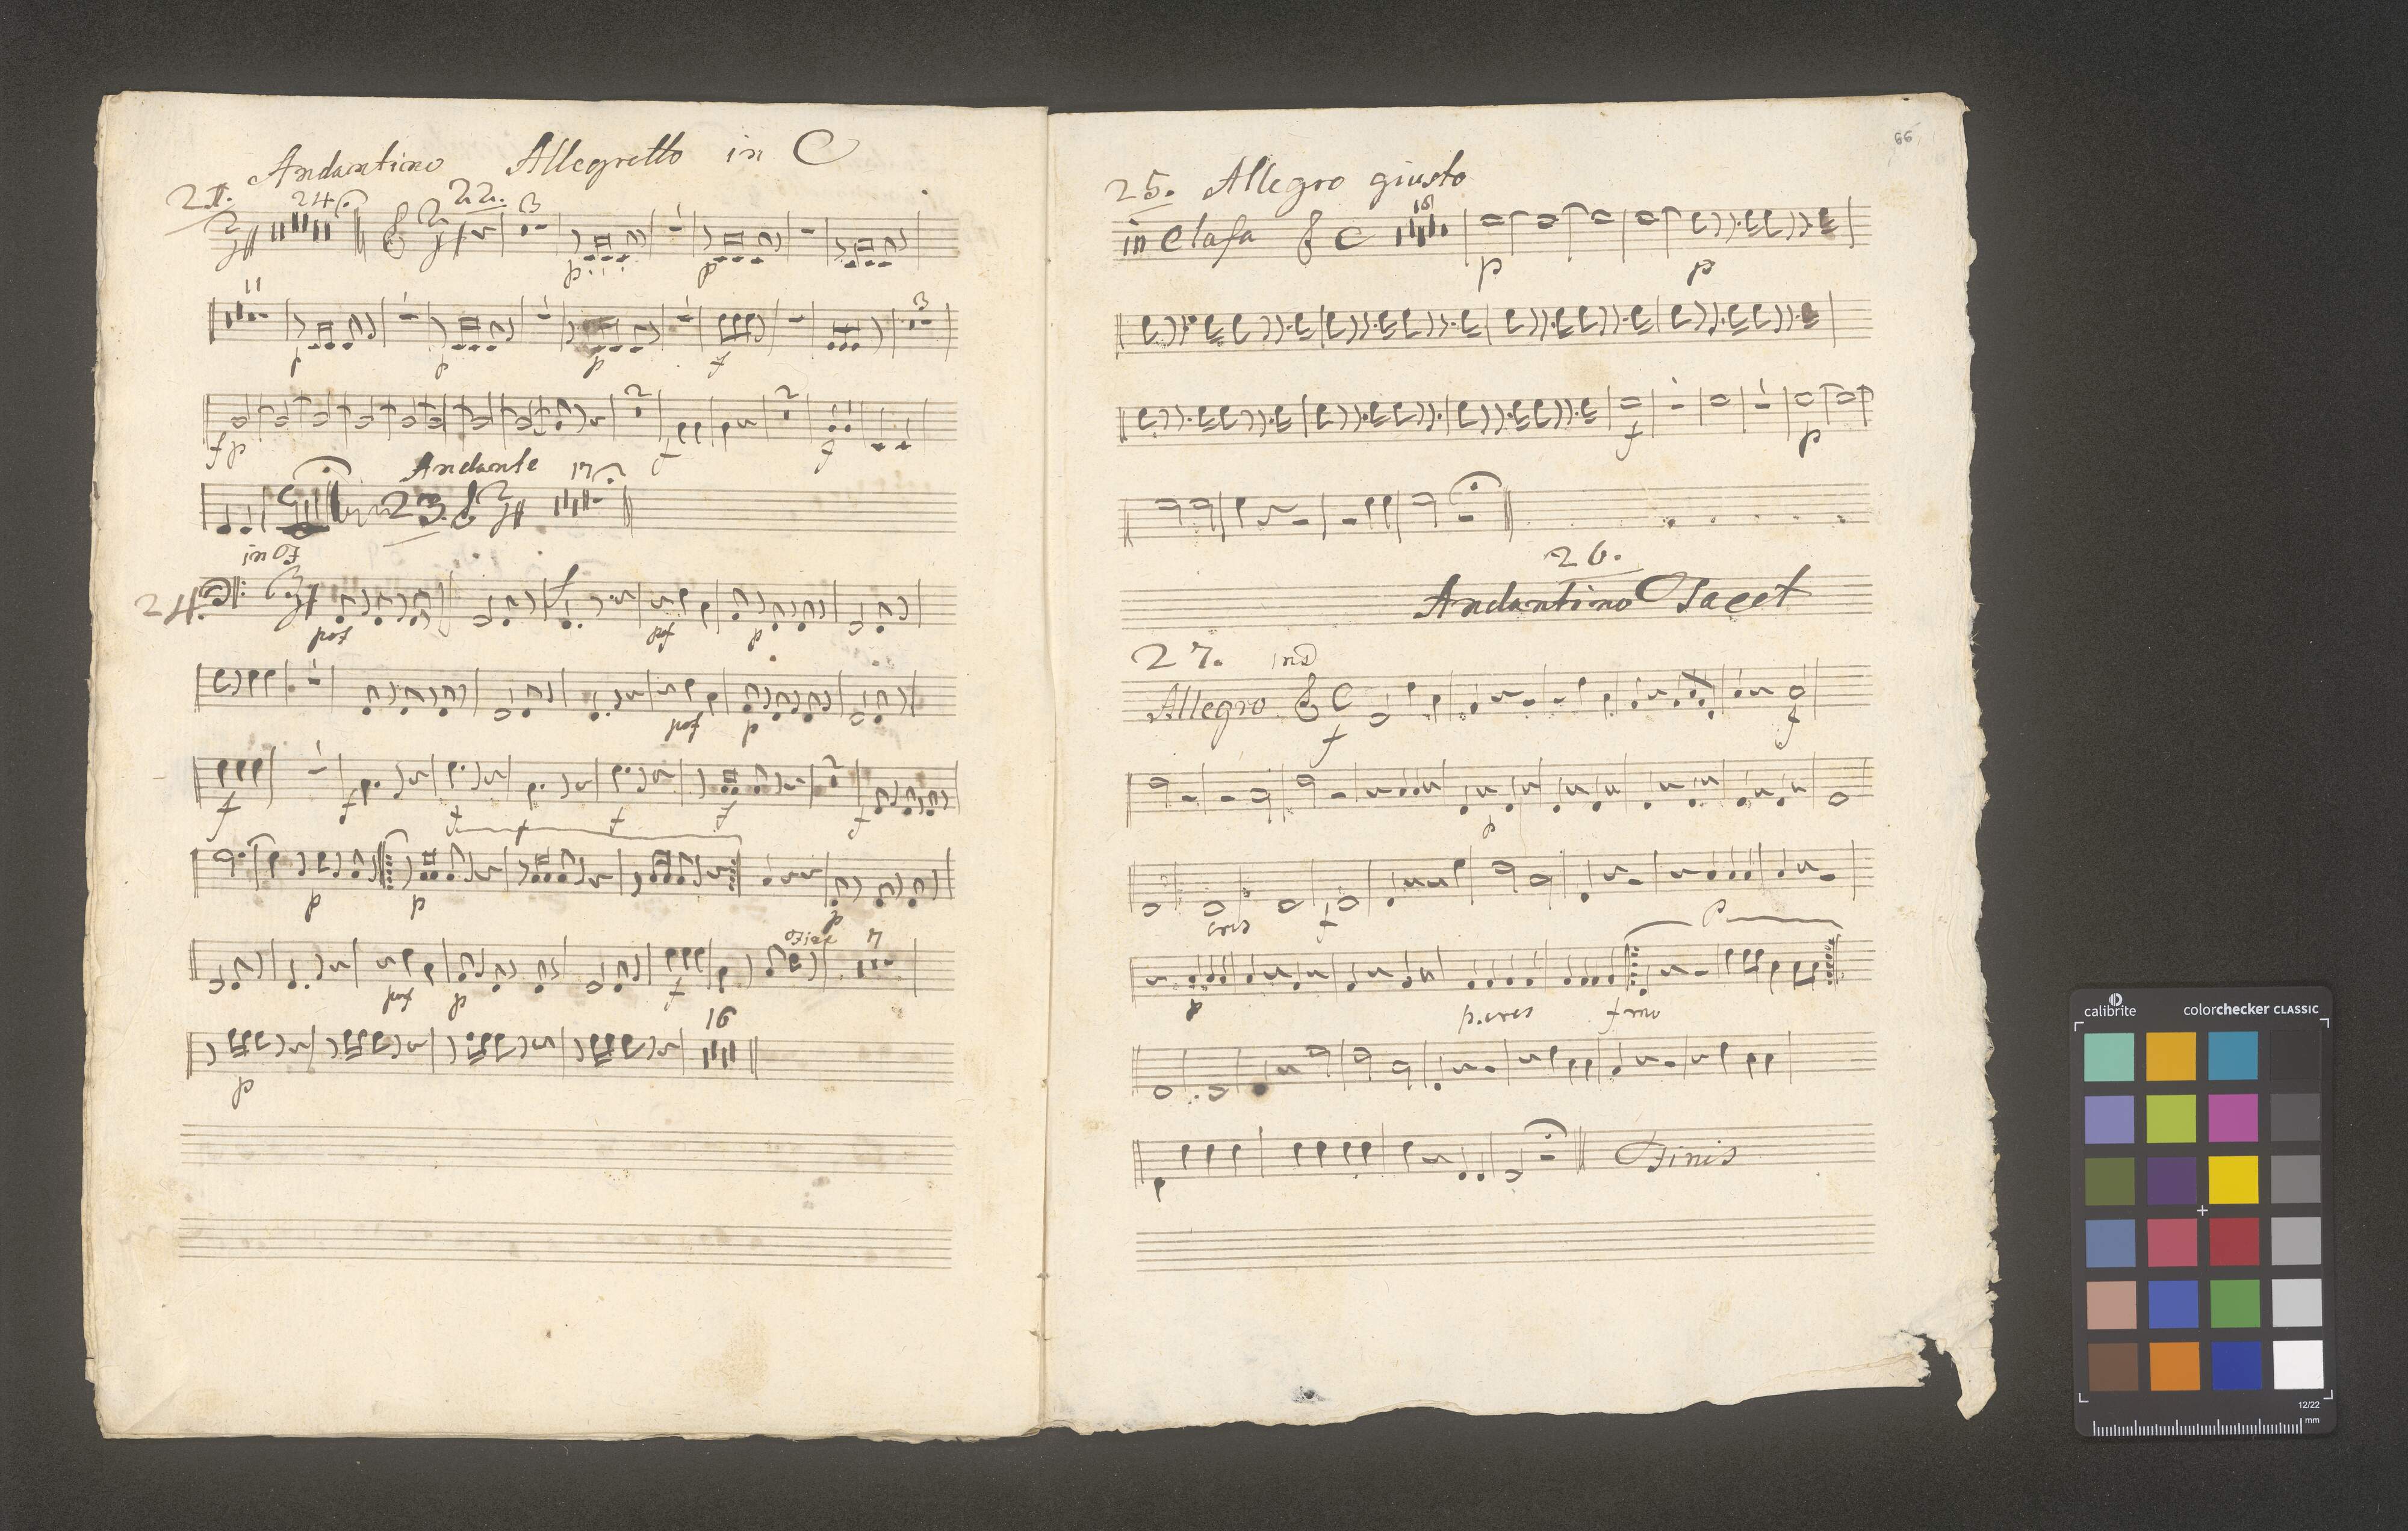 Andantino Allegretto in C
21. 24 22. 3
p p
11 3
p p p f
2 2
f p f f
Andante
23. 17
in F
24.
pof pof p
pof p
f f f f f f
p p p
Fine 7
pof p f
16
p
66
25. Allegro giusto
in Elafa C
p p
f p
26.
Andantino Tacet
27. in D
Allegro C
f f
p
cres f
p
p. cres fmo
Finis
calibrite colorchecker CLASSIC
12/22
mm